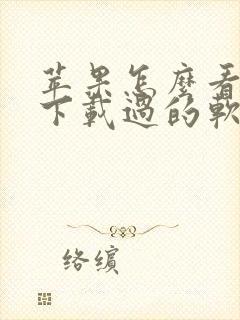 苹果怎麼看
下載過的軟
络縯